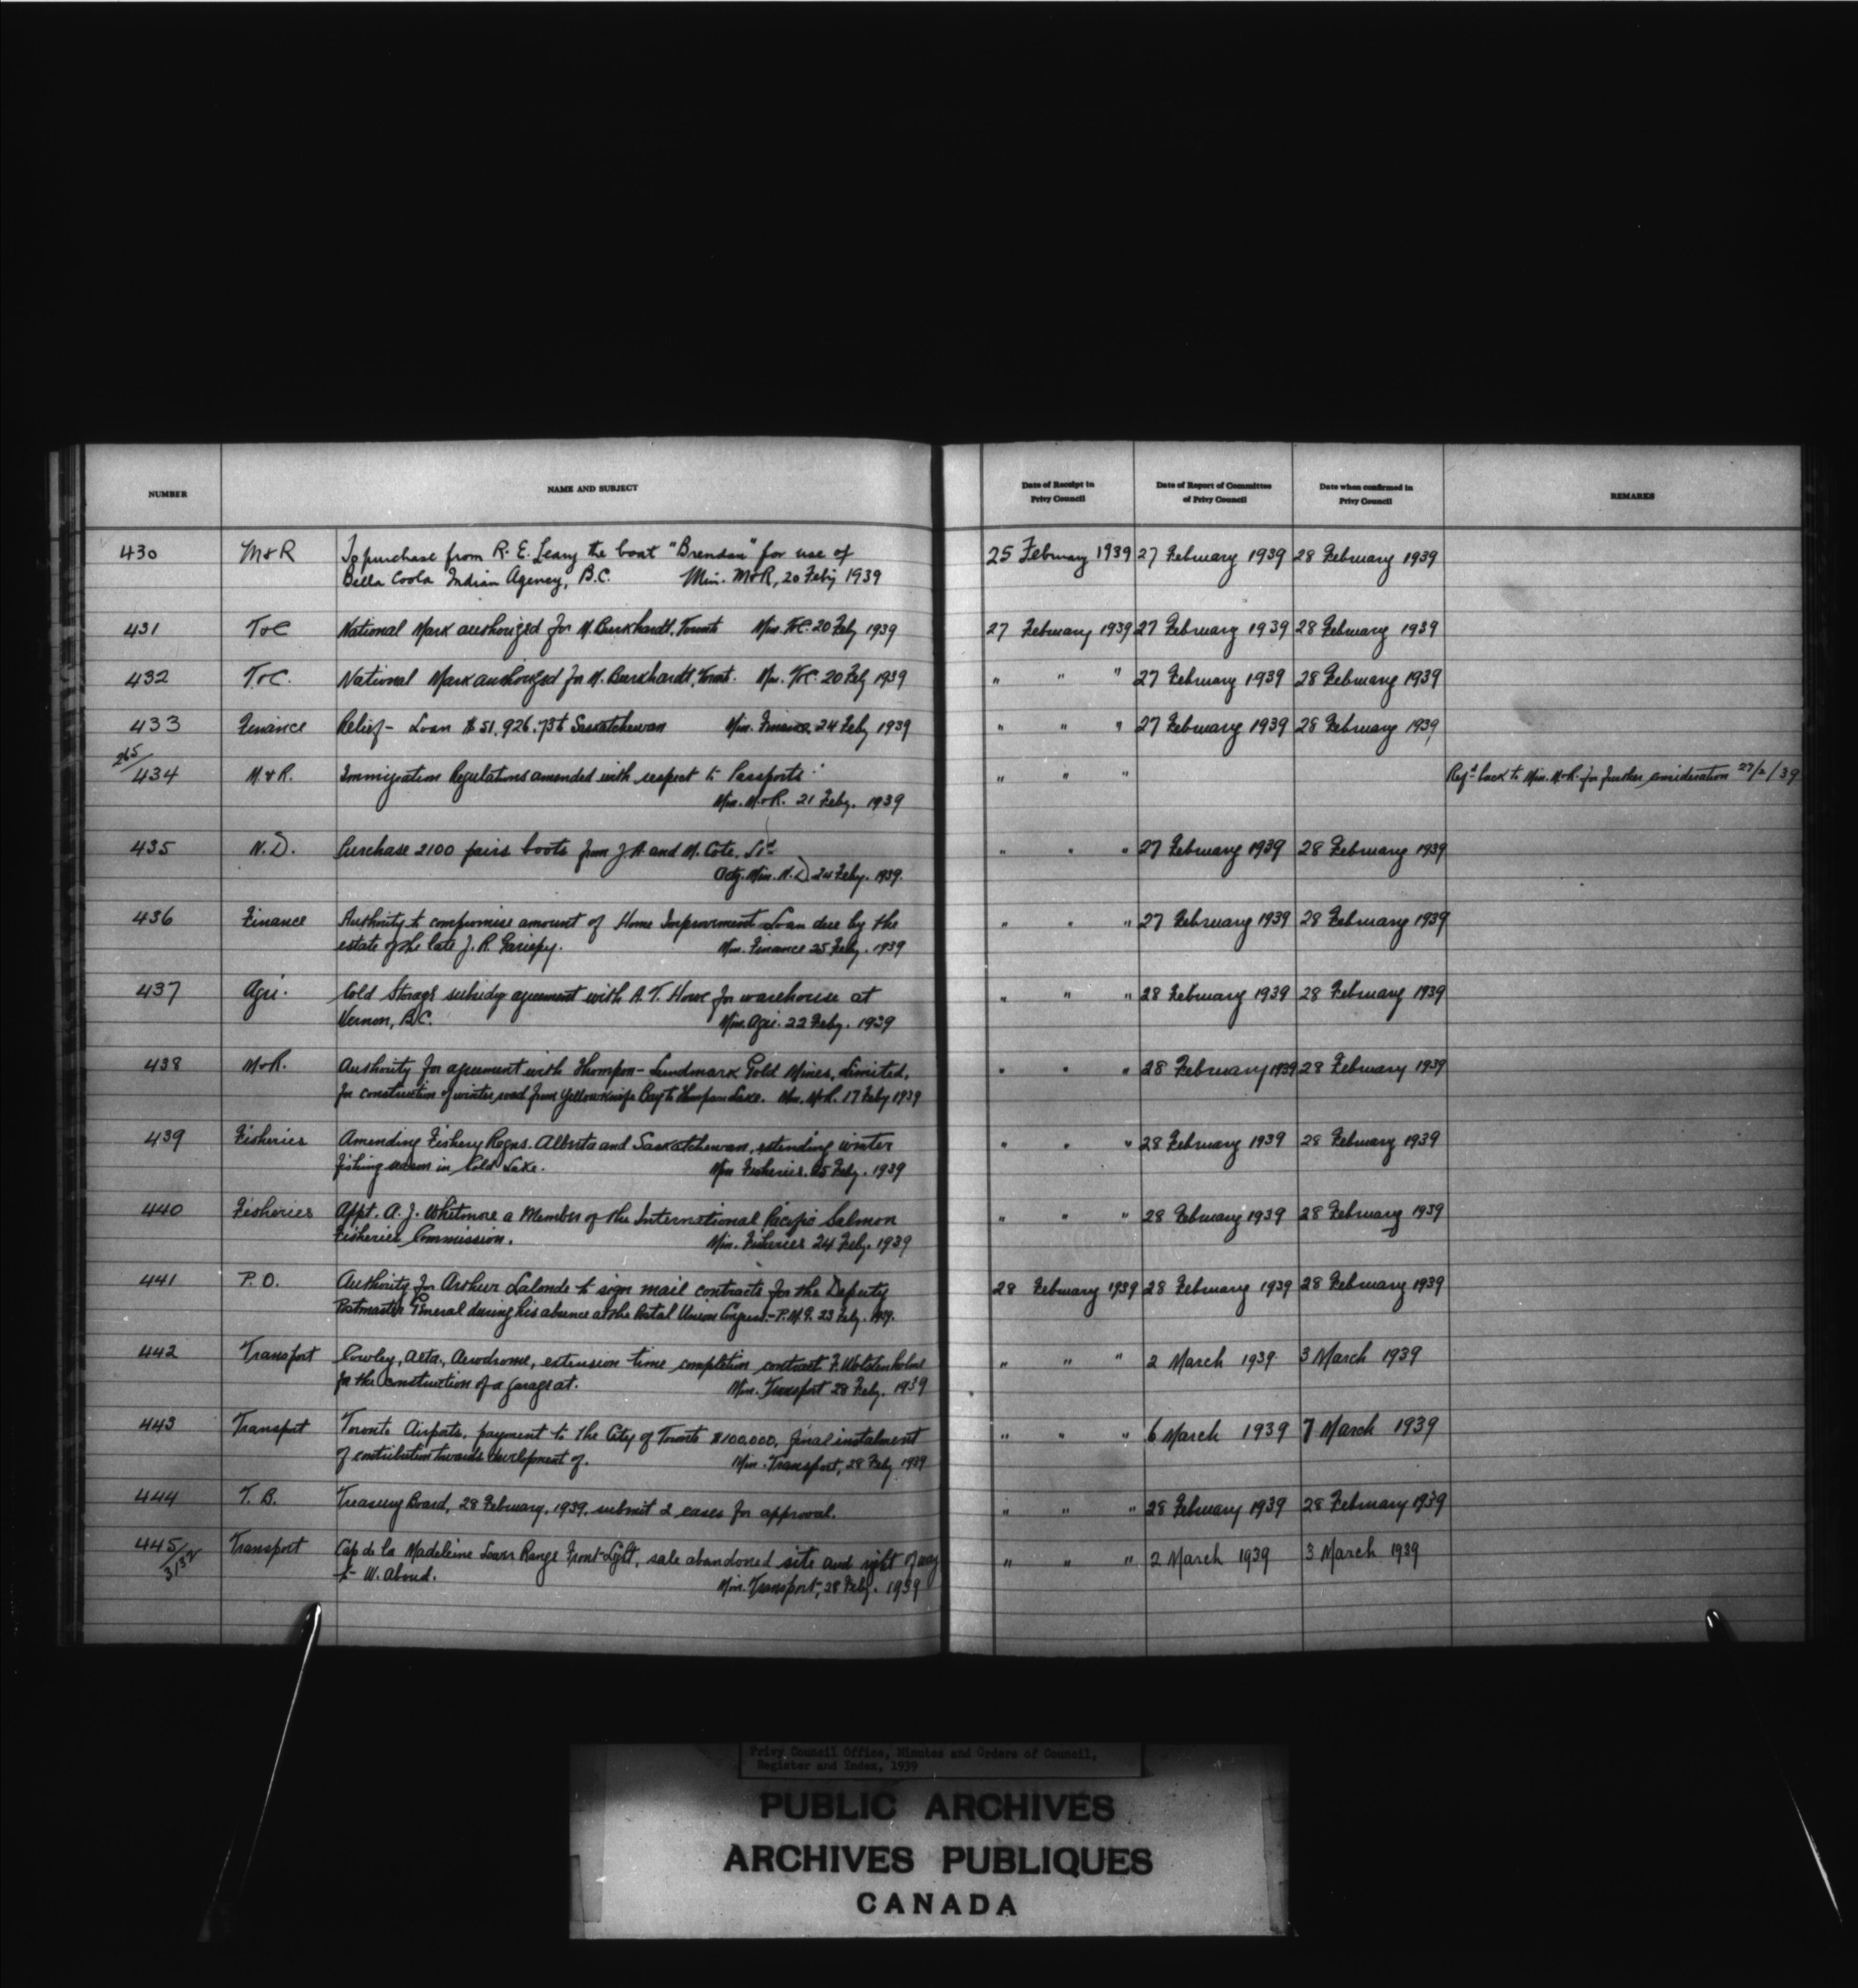 NUMBER NAME AND SUBJECT Date of Receipt in Privy Council Date of Report of Committee of Privy Council Date when confirmed in Privy Council REMARKS
430 M&R To purchase from R. E. Leary the boat "Brendan" for use of 25 February 1939 27 February 1939 28 February 1939
Bella Coola Indian Agency, B.C. Min. M&R, 20 Feby 1939
431 T&C National Mark authorized for M. Burkhardt, Toronto Min. T&C. 20 Feby 1939 27 February 1939 27 February 1939 28 February 1939
432 T&C. National Mark authorized for M. Burkhardt, Min. T&C. 20 Feby 1939 " " " 27 February 1939 28 February 1939
433 Finance Relief - Loan $51,926.73 to Saskatchewan Min. Finance, 24 Feby 1939 " " " 27 February 1939 28 February 1939
265/
434 M.&R. Immigration Regulations amended with respect to Passports " " " Refd back to Min. M&R. for further consideration 27/2/39
Min. M&R. 21 Feby. 1939
435 N.D. Purchase 2100 pairs boots from J A and M. Cote, Ltd " " " 27 February 1939 28 February 1939
Actg. Min. N.D. 24 Feby. 1939.
436 Finance Authority to compromise amount of Home Improvement Loan due by the " " " 27 February 1939 28 February 1939
estate of the late J. R. Gariepy. Min. Finance 25 Feby. 1939
437 Agri. Cold Storage subsidy agreement with A. T. Howe for warehouse at " " " 28 February 1939 28 February 1939
Vernon, B.C. Min. Agri. 22 Feby. 1939
438 M&R. Authority for agreement with Thompson-Lundmark Gold Mines, Limited, " " " 28 February 1939 28 February 1939
for construction of winter road from Yellowknife Bay to Thompson Lake. Min. M&R. 17 Feby 1939
439 Fisheries Amending Fishery Regns. Alberta and Saskatchewan, extending winter " " " 28 February 1939 28 February 1939
fishing season in Cold Lake. Min Fisheries. 25 Feby. 1939
440 Fisheries Appt. A. J. Whitmore a Member of the International Pacific Salmon " " " 28 February 1939 28 February 1939
Fisheries Commission. Min. Fisheries 24 Feby. 1939
441 P.O. Authority for Arthur Lalonde to sign mail contracts for the Deputy 28 February 1939 28 February 1939 28 February 1939
Postmaster General during his absence at the Postal Union Congress.- P.M.G. 23 Feby. 1939.
442 Transport Cowley, Alta., Aerodrome, extension time completion contract F. Wolstenholme " " " 2 March 1939 3 March 1939
for the construction of a garage at. Min. Transport 28 Feby. 1939
443 Transport Toronto Airports, payment to the City of Toronto $100,000, final instalment " " " 6 March 1939 7 March 1939
of contribution towards development of. Min. Transport, 28 Feby 1939
444 T.B. Treasury Board, 28 February, 1939, submit 2 cases for approval. " " " 28 February 1939 28 February 1939
445/3132 Transport Cap de la Madeleine Lower Range Front Light, sale abandoned site and right of way " " " 2 March 1939 3 March 1939
to W. Aboud. Min. Transport, 28 Feby. 1939
Privy Council Office, Minutes and Orders of Council,
Register and Index, 1939
PUBLIC ARCHIVES
ARCHIVES PUBLIQUES
CANADA